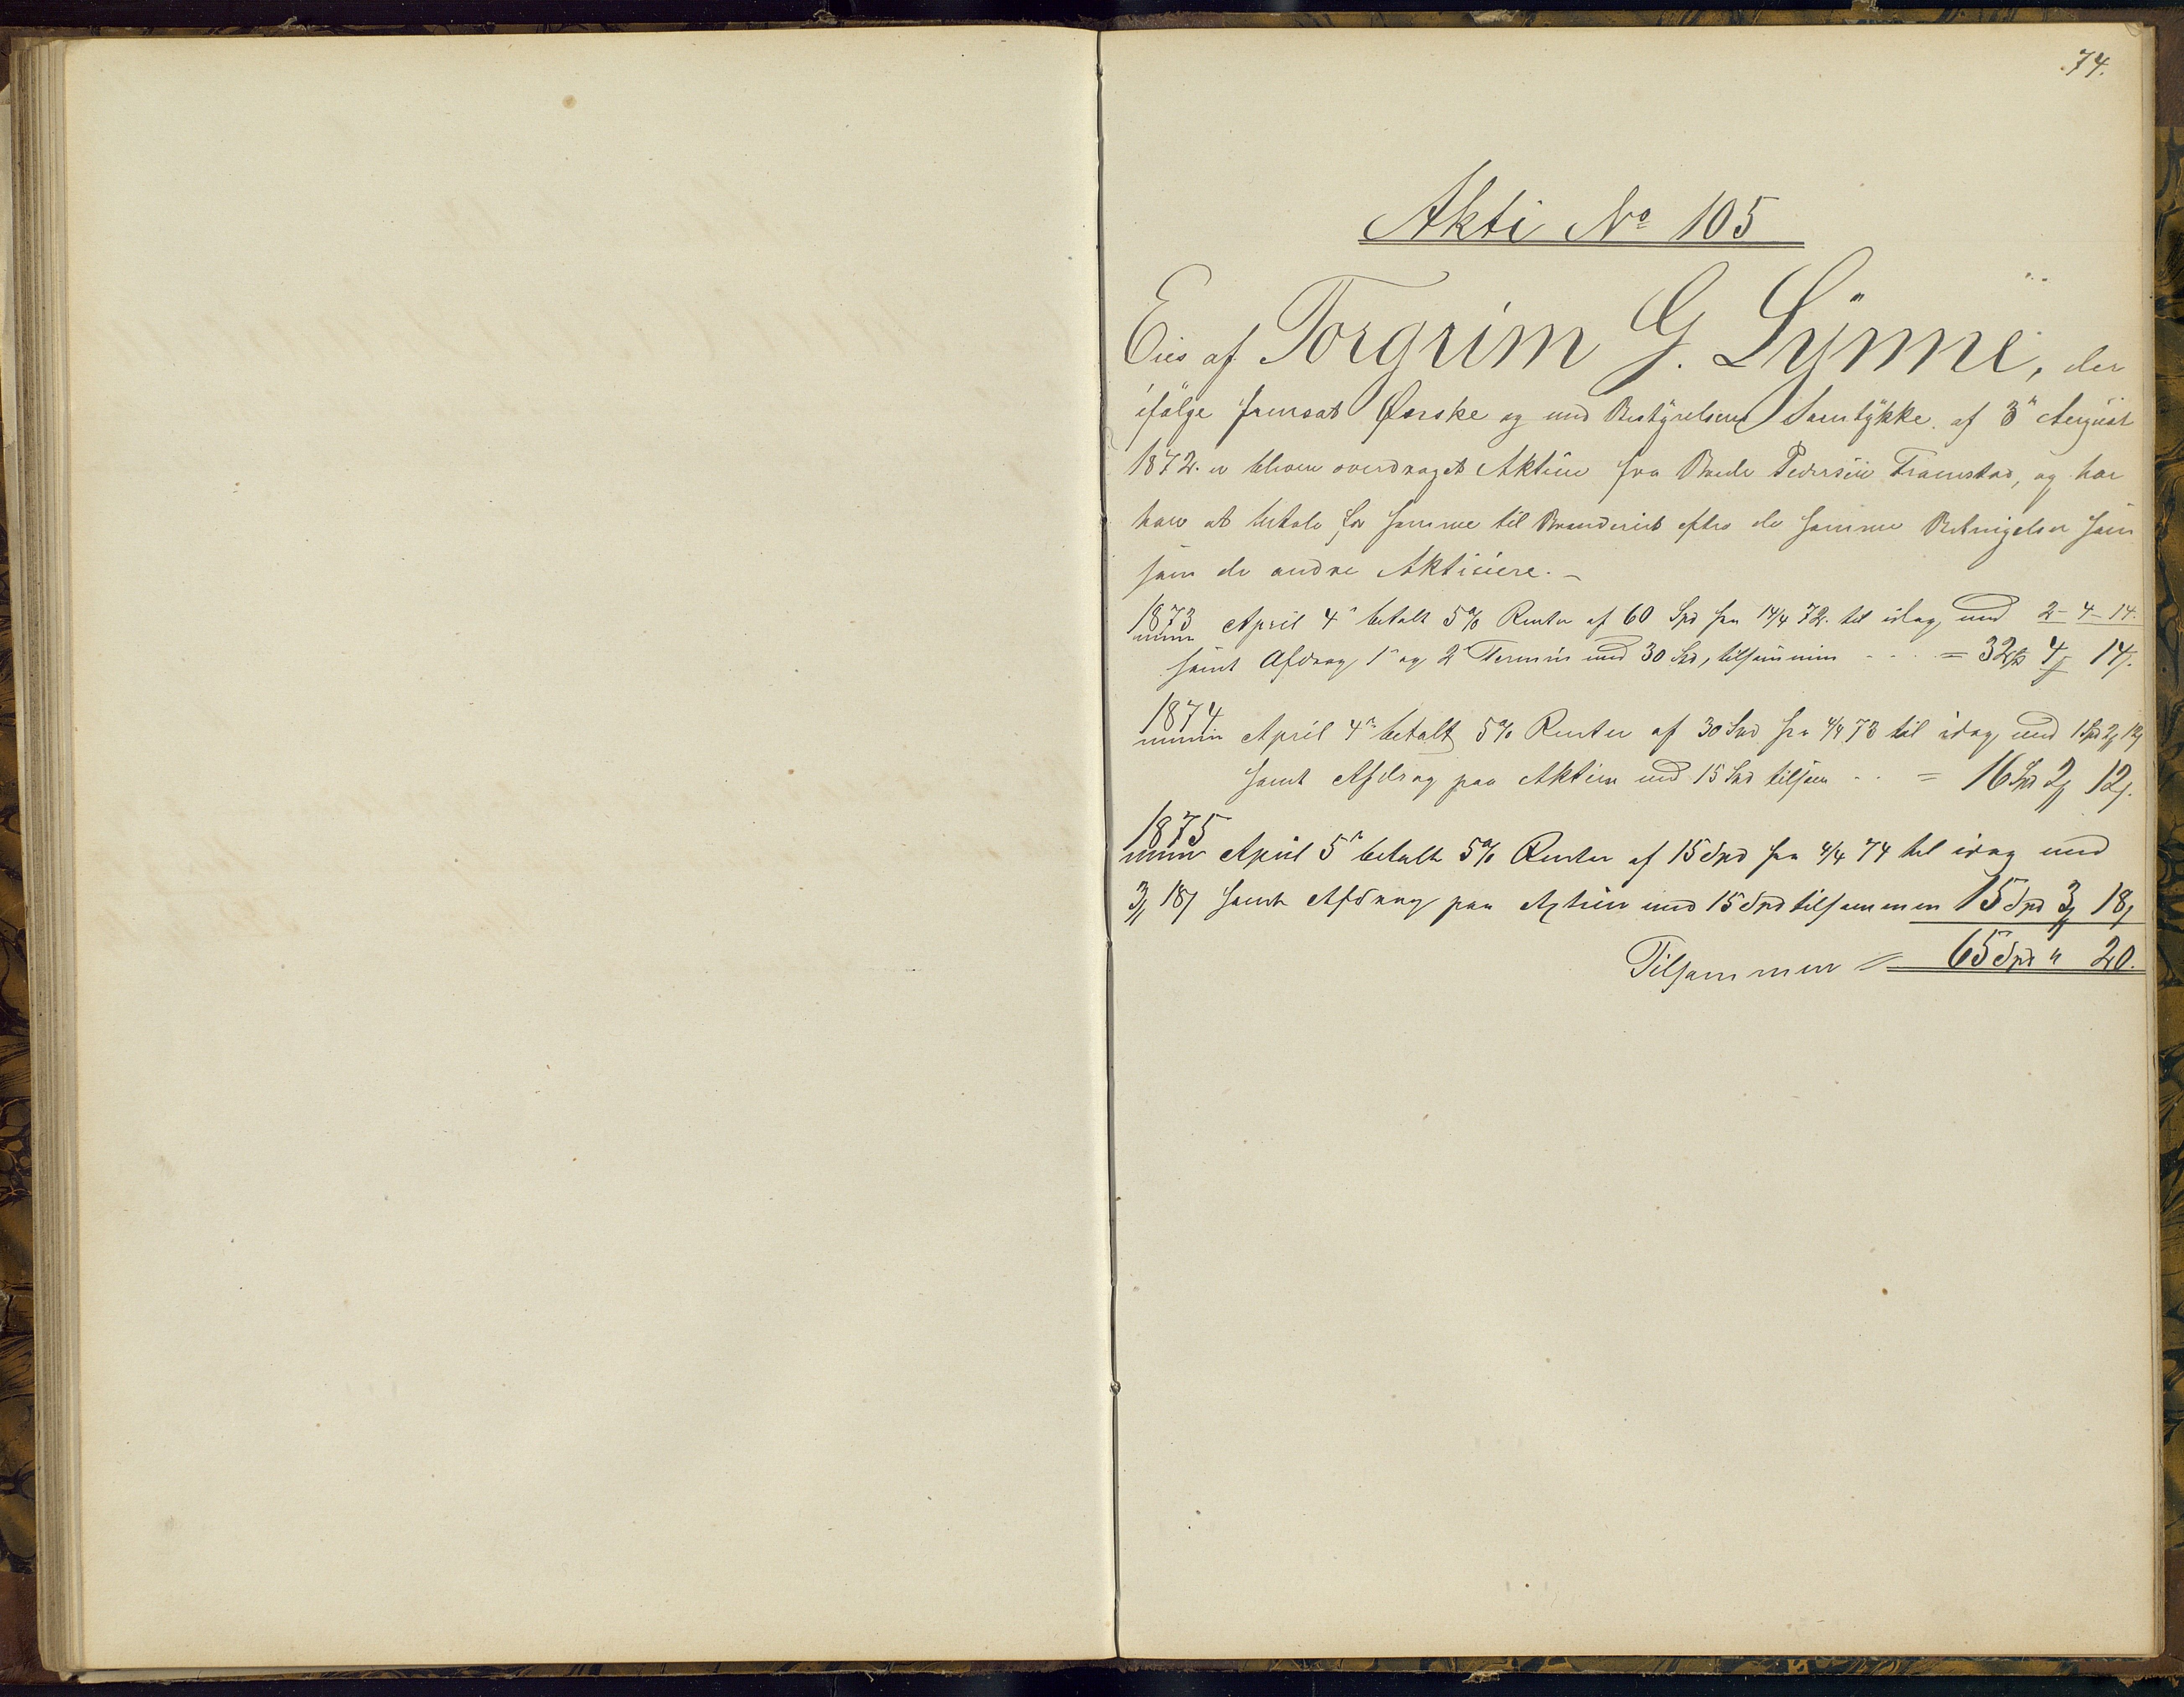 74.
Akti No 105
Eies af Torgrim G. Lÿnne, der
ifølge fremsat Ønske og med Bestÿrelsens Samtÿkke af 3die August
1872. er bleven overdraget Aktien fra Brede Pedersen Framstad, og har
han at betale for samme til Brænderiet efter de samme Betingelser som
som de andre Aktieiere.
1873 April 4de betalt 5% Renter af 60 Spd fra 14/4 72. til idag, med 2 - 4 - 14.
samt Afdrag, 1ste og 2den Termin med 30 Spd, tilsammen - - - = 32 Spd 4 14.
1874
April 4de betalt 5% Renter af 30 Spd fra 4/4 73 til idag, med 1 Spd 2 12
samt Afdrag paa Aktien med 15 Spd tilsam - - = 16 Spd 2 12.
1875
April 5te betalt 5% Renter af 15 Spd fra 4/4 74 til idag med
3 18 samt Afdrag paa Aktien med 15 Spd tilsammen 15 Spd 3 18
Tilsammen = 65 Spd " 20.